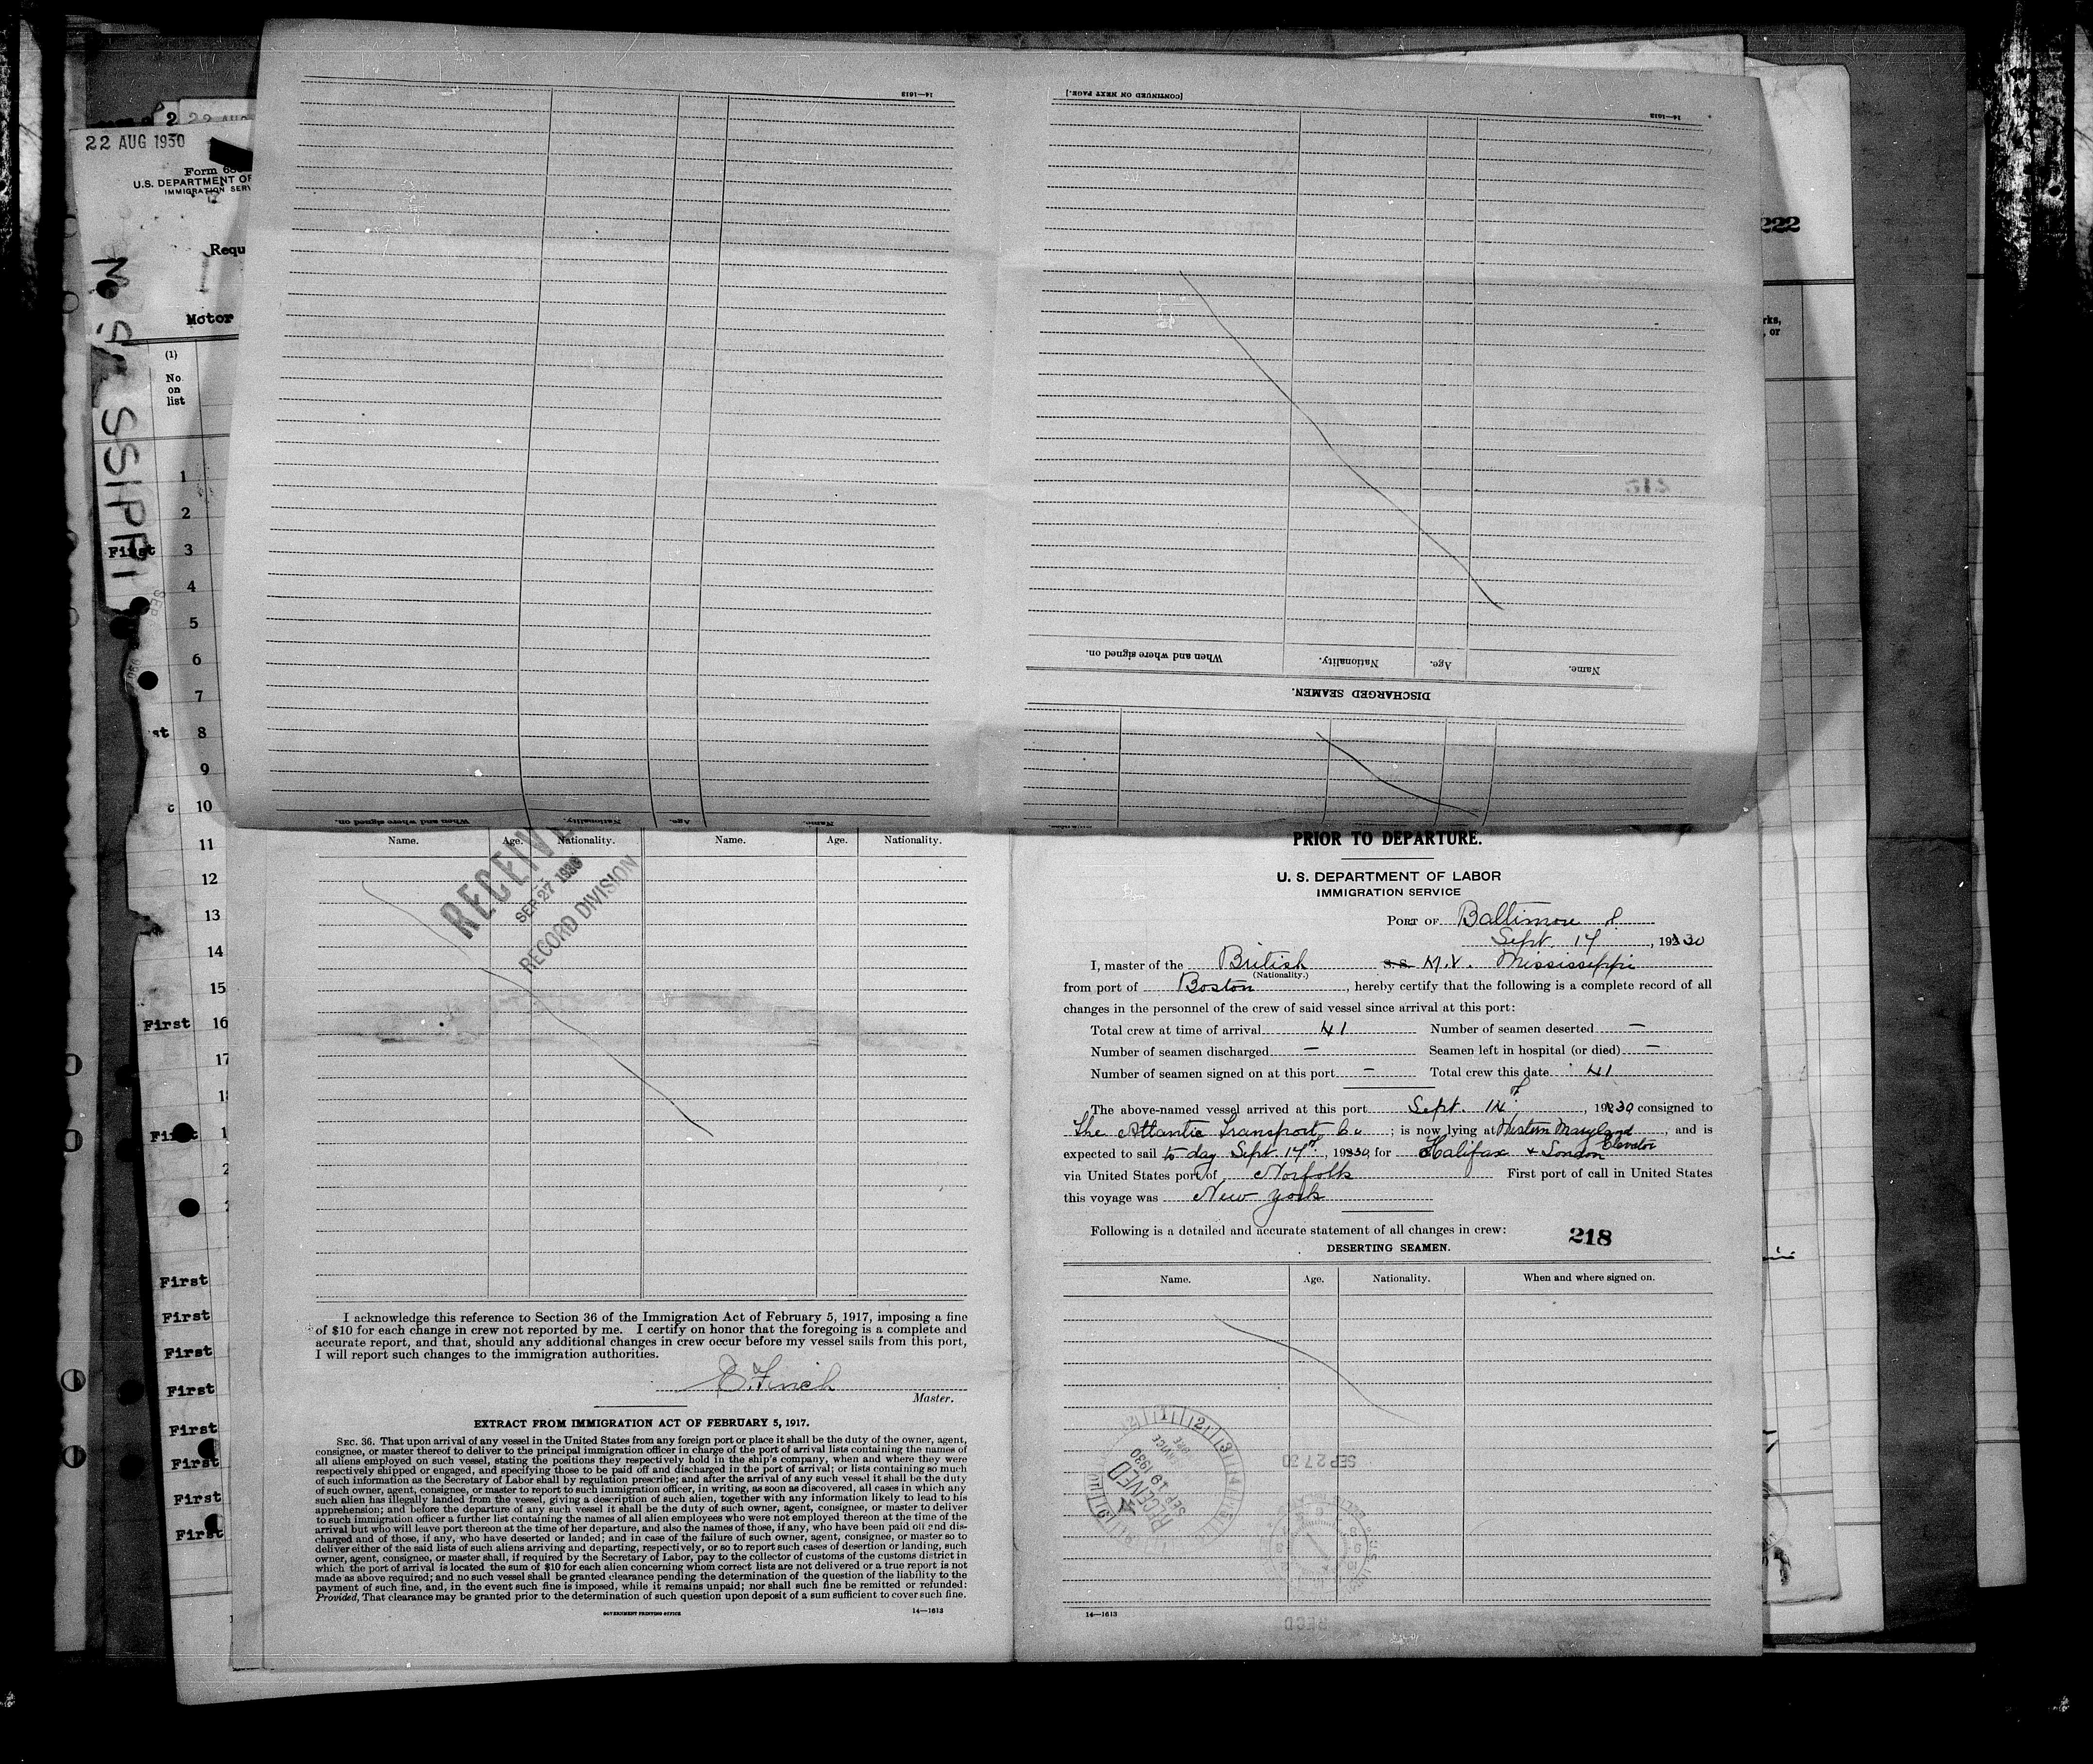 22 AUG 1930
U.S. DEPARTMENT OF
IMMIGRATION SERV
Requ
Motor
(1)
No.
on
list
SSIPPI
1
2
First 3
4
5
6
7
st 8
9
c 10
11
12
13
14
15
First 16
17
First
First
First
First
First
First
First
First
14—1613
[CONTINUED ON NEXT PAGE.]
14—1613
222
rks,
, or
When and where signed on. Nationality. Age. Name.
DISCHARGED SEAMEN.
When and where signed on. Nationality. Age. Name.
Name. Age. Nationality. Name. Age. Nationality.
RECEIVE
SEP 27 1930
RECORD DIVISION
I acknowledge this reference to Section 36 of the Immigration Act of February 5, 1917, imposing a fine
of $10 for each change in crew not reported by me. I certify on honor that the foregoing is a complete and
accurate report, and that, should any additional changes in crew occur before my vessel sails from this port,
I will report such changes to the immigration authorities.
E. Finch
Master.
EXTRACT FROM IMMIGRATION ACT OF FEBRUARY 5, 1917.
SEC. 36. That upon arrival of any vessel in the United States from any foreign port or place it shall be the duty of the owner, agent,
consignee, or master thereof to deliver to the principal immigration officer in charge of the port of arrival lists containing the names of
all aliens employed on such vessel, stating the positions they respectively hold in the ship's company, when and where they were
respectively shipped or engaged, and specifying those to be paid off and discharged in the port of arrival; or lists containing so much
of such information as the Secretary of Labor shall by regulation prescribe; and after the arrival of any such vessel it shall be the duty
of such owner, agent, consignee, or master to report to such immigration officer, in writing, as soon as discovered, all cases in which any
such alien has illegally landed from the vessel, giving a description of such alien, together with any information likely to lead to his
apprehension; and before the departure of any such vessel it shall be the duty of such owner, agent, consignee, or master to deliver
to such immigration officer a further list containing the names of all alien employees who were not employed thereon at the time of the
arrival but who will leave port thereon at the time of her departure, and also the names of those, if any, who have been paid off and dis-
charged and of those, if any, who have deserted or landed; and in case of the failure of such owner, agent, consignee, or master so to
deliver either of the said lists of such aliens arriving and departing, respectively, or so to report such cases of desertion or landing, such
owner, agent, consignee, or master shall, if required by the Secretary of Labor, pay to the collector of customs of the customs district in
which the port of arrival is located the sum of $10 for each alien concerning whom correct lists are not delivered or a true report is not
made as above required; and no such vessel shall be granted clearance pending the determination of the question of the liability to the
payment of such fine, and, in the event such fine is imposed, while it remains unpaid; nor shall such fine be remitted or refunded:
Provided, That clearance may be granted prior to the determination of such question upon deposit of a sum sufficient to cover such fine.
GOVERNMENT PRINTING OFFICE 14—1613
PRIOR TO DEPARTURE.
U. S. DEPARTMENT OF LABOR
IMMIGRATION SERVICE
PORT OF Baltimore
Sept. 17, 1930
I, master of the British S. S. M.V. Mississippi
(Nationality.)
from port of Boston, hereby certify that the following is a complete record of all
changes in the personnel of the crew of said vessel since arrival at this port:
Total crew at time of arrival 41 Number of seamen deserted —
Number of seamen discharged — Seamen left in hospital (or died) —
Number of seamen signed on at this port — Total crew this date 41
The above-named vessel arrived at this port Sept. 14, 1930 consigned to
The Atlantic Transport Co; is now lying at Western Maryland, and is
Elevator
expected to sail to day Sept. 17th, 1930, for Halifax & London
via United States port of Norfolk First port of call in United States
this voyage was New York
Following is a detailed and accurate statement of all changes in crew:
218
DESERTING SEAMEN.
Name. Age. Nationality. When and where signed on.
RECEIVED
SEP 19 1930
SEP 27 30
14—1613
RECD